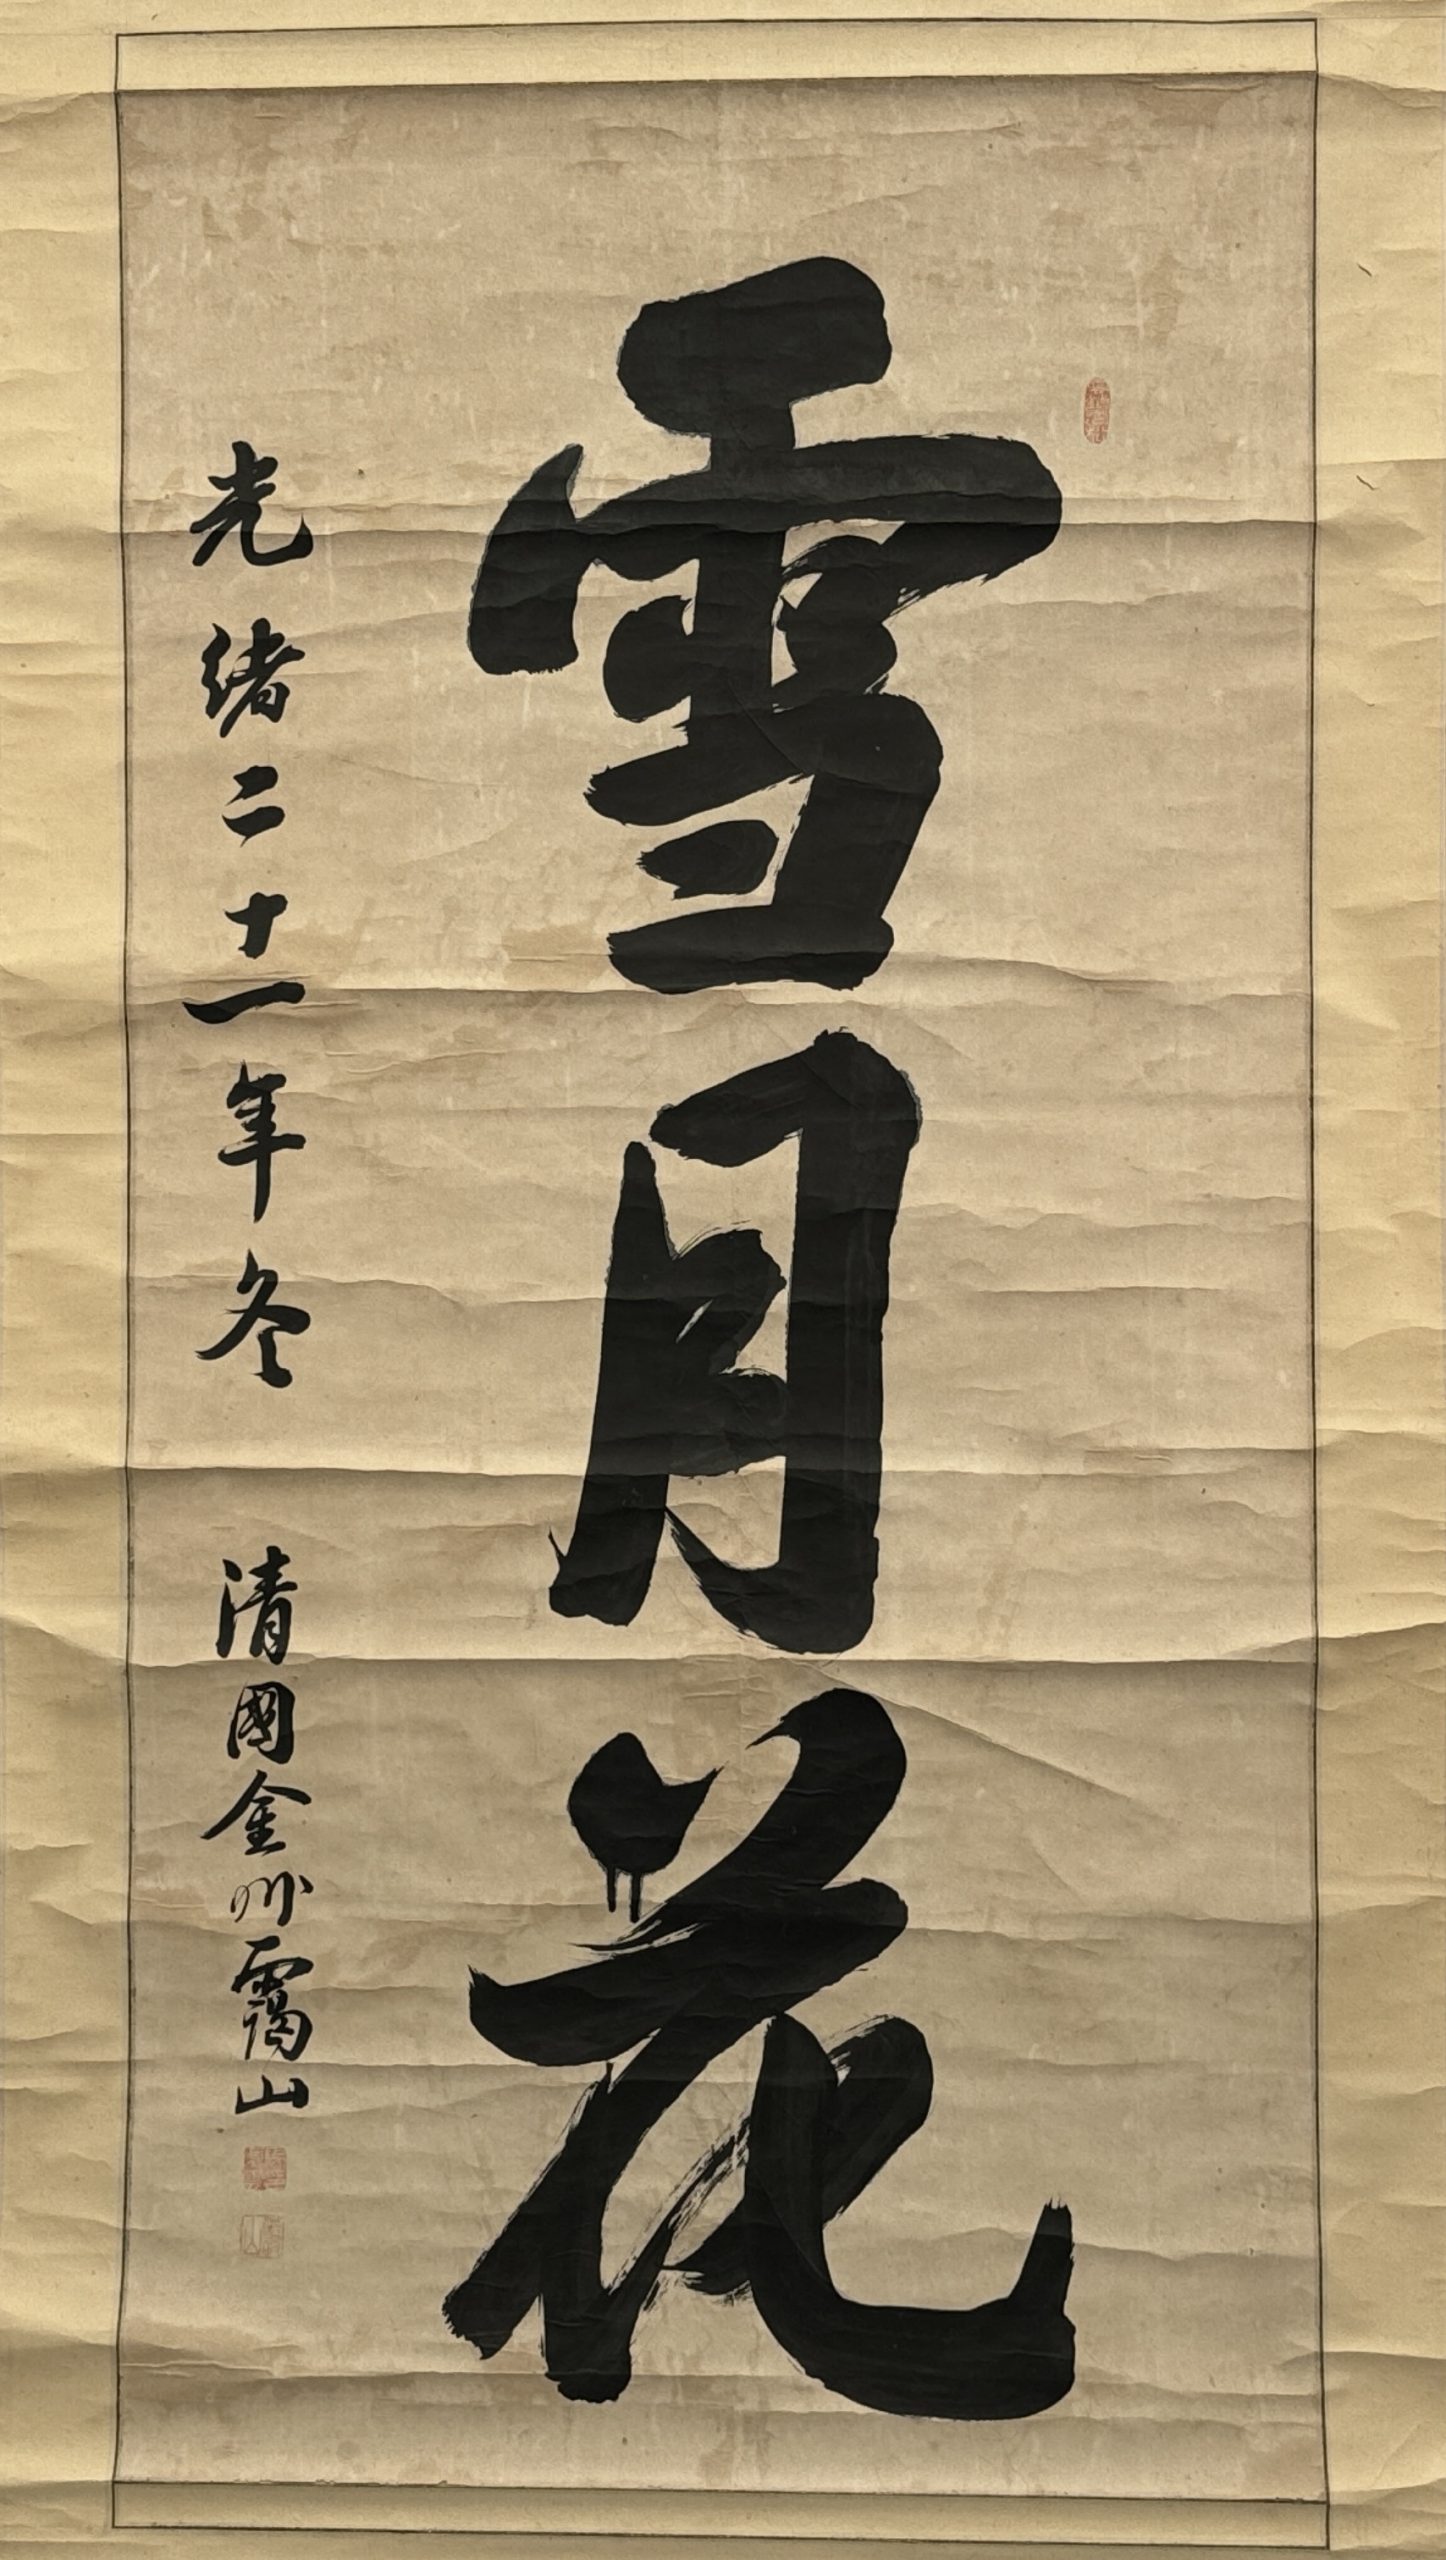 雪月花
光緒二十一年冬
清國金州靄山